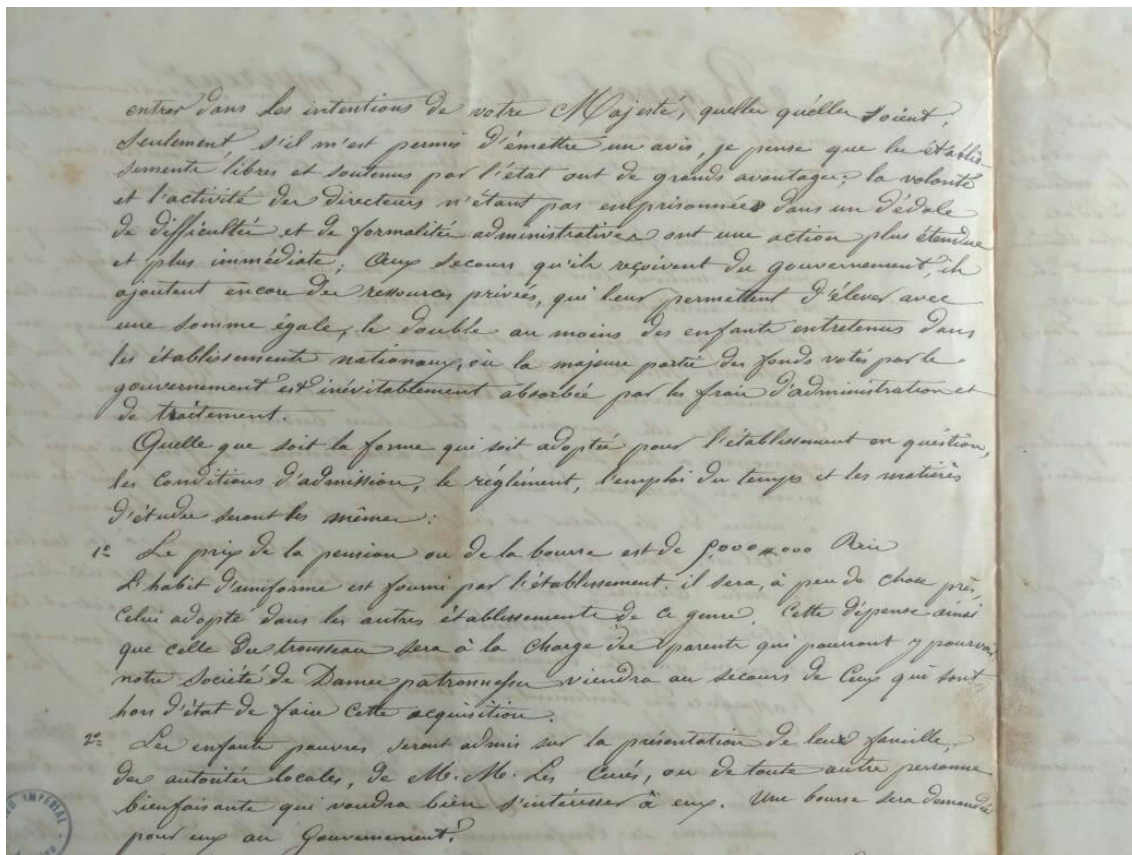 entrer dans les intentions de votre Majesté, quelles qu'elles soient,
seulement s'il m'est permis d'émettre un avis, je pense que les établis
sements libres et soutenus par l'état ont de grands avantages; la volonté
et l'activité des directeurs n'étant pas emprisonnées dans un dédale
de difficultés et de formalités administratives ont une action plus étendue
et plus immédiate; Aux secours qu'ils reçoivent du gouvernement, ils
ajoutent encore des ressources privées, qui leur permettent d'élever avec
une somme égale, le double au moins des enfants entretenus dans
les établissements nationaux, où la majeure partie des fonds votés par le
gouvernement est inévitablement absorbée par les frais d'administration et
de traitement.
Quelle que soit la forme qui soit adoptée pour l'établissement en question,
les conditions d'admission, le réglément, l'emploi du temps et les matières
d'études seront les mêmes:
1º Le prix de la pension ou de la bourse est de Reis
L'habit d'uniforme est fourni par l'établissement. il sera, à peu de chose près,
celui adopté dans les autres établissements de ce genre. Cette dépense ainsi
que celle du trousseau sera à la charge des parents qui pourront y pourvoir
notre Société de Dames patronnesses viendra au secours de ceux qui sont
hors d'état de faire cette acquisition.
2º Les enfants pauvres seront admis sur la présentation de leur famille,
des autorités locales, de M.M. Les Curés, ou de toute autre personne
bienfaisante qui voudra bien s'intéresser à eux. Une bourse sera demandée
pour eux au Gouvernement.
IMPERIAL